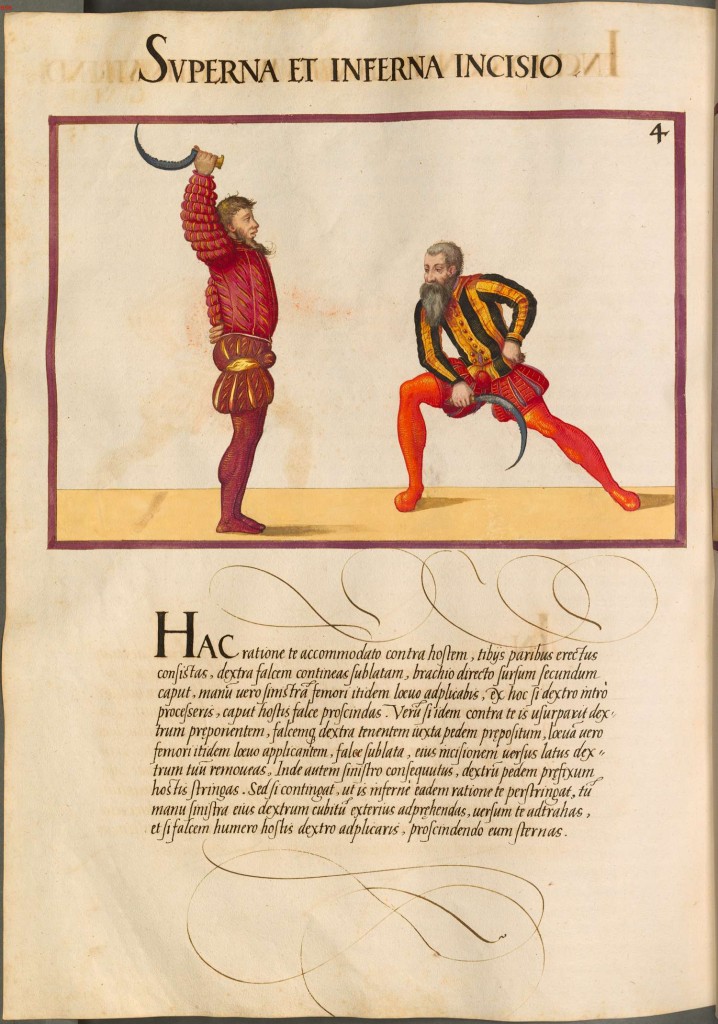 SVPERNA ET INFERNA INCISIO
4
HAC ratione te accommodato contra hostem, tibijs paribus erectus
consistas, dextra falcem contineas sublatam, brachio directo sursum secundum
caput, manu uero sinistra femori itidem lœuo adplicabis, ex hoc si dextro intrò
processeris, caput hostis falce proscindas. Verū si idem contra te is usurparit dex-
trum preponentem, falcemq́ dextra tenentem iuxta pedem prępositum, lœua uero
femori itidem lœuo applicantem, falce sublata, eius incisionem uersus latus dex=
trum tuū remoueas. Inde autem sinistro consequutus, dextrū pedem pręfixum
hostis stringas. Sed si contingat, ut is infernè eadem ratione te perstringat, tū
manu sinistra eius dextrum cubitū exterius adpręhendas, uersum te adtrahas,
et si falcem humero hostis dextro adplicaris, proscindendo eum sternas.